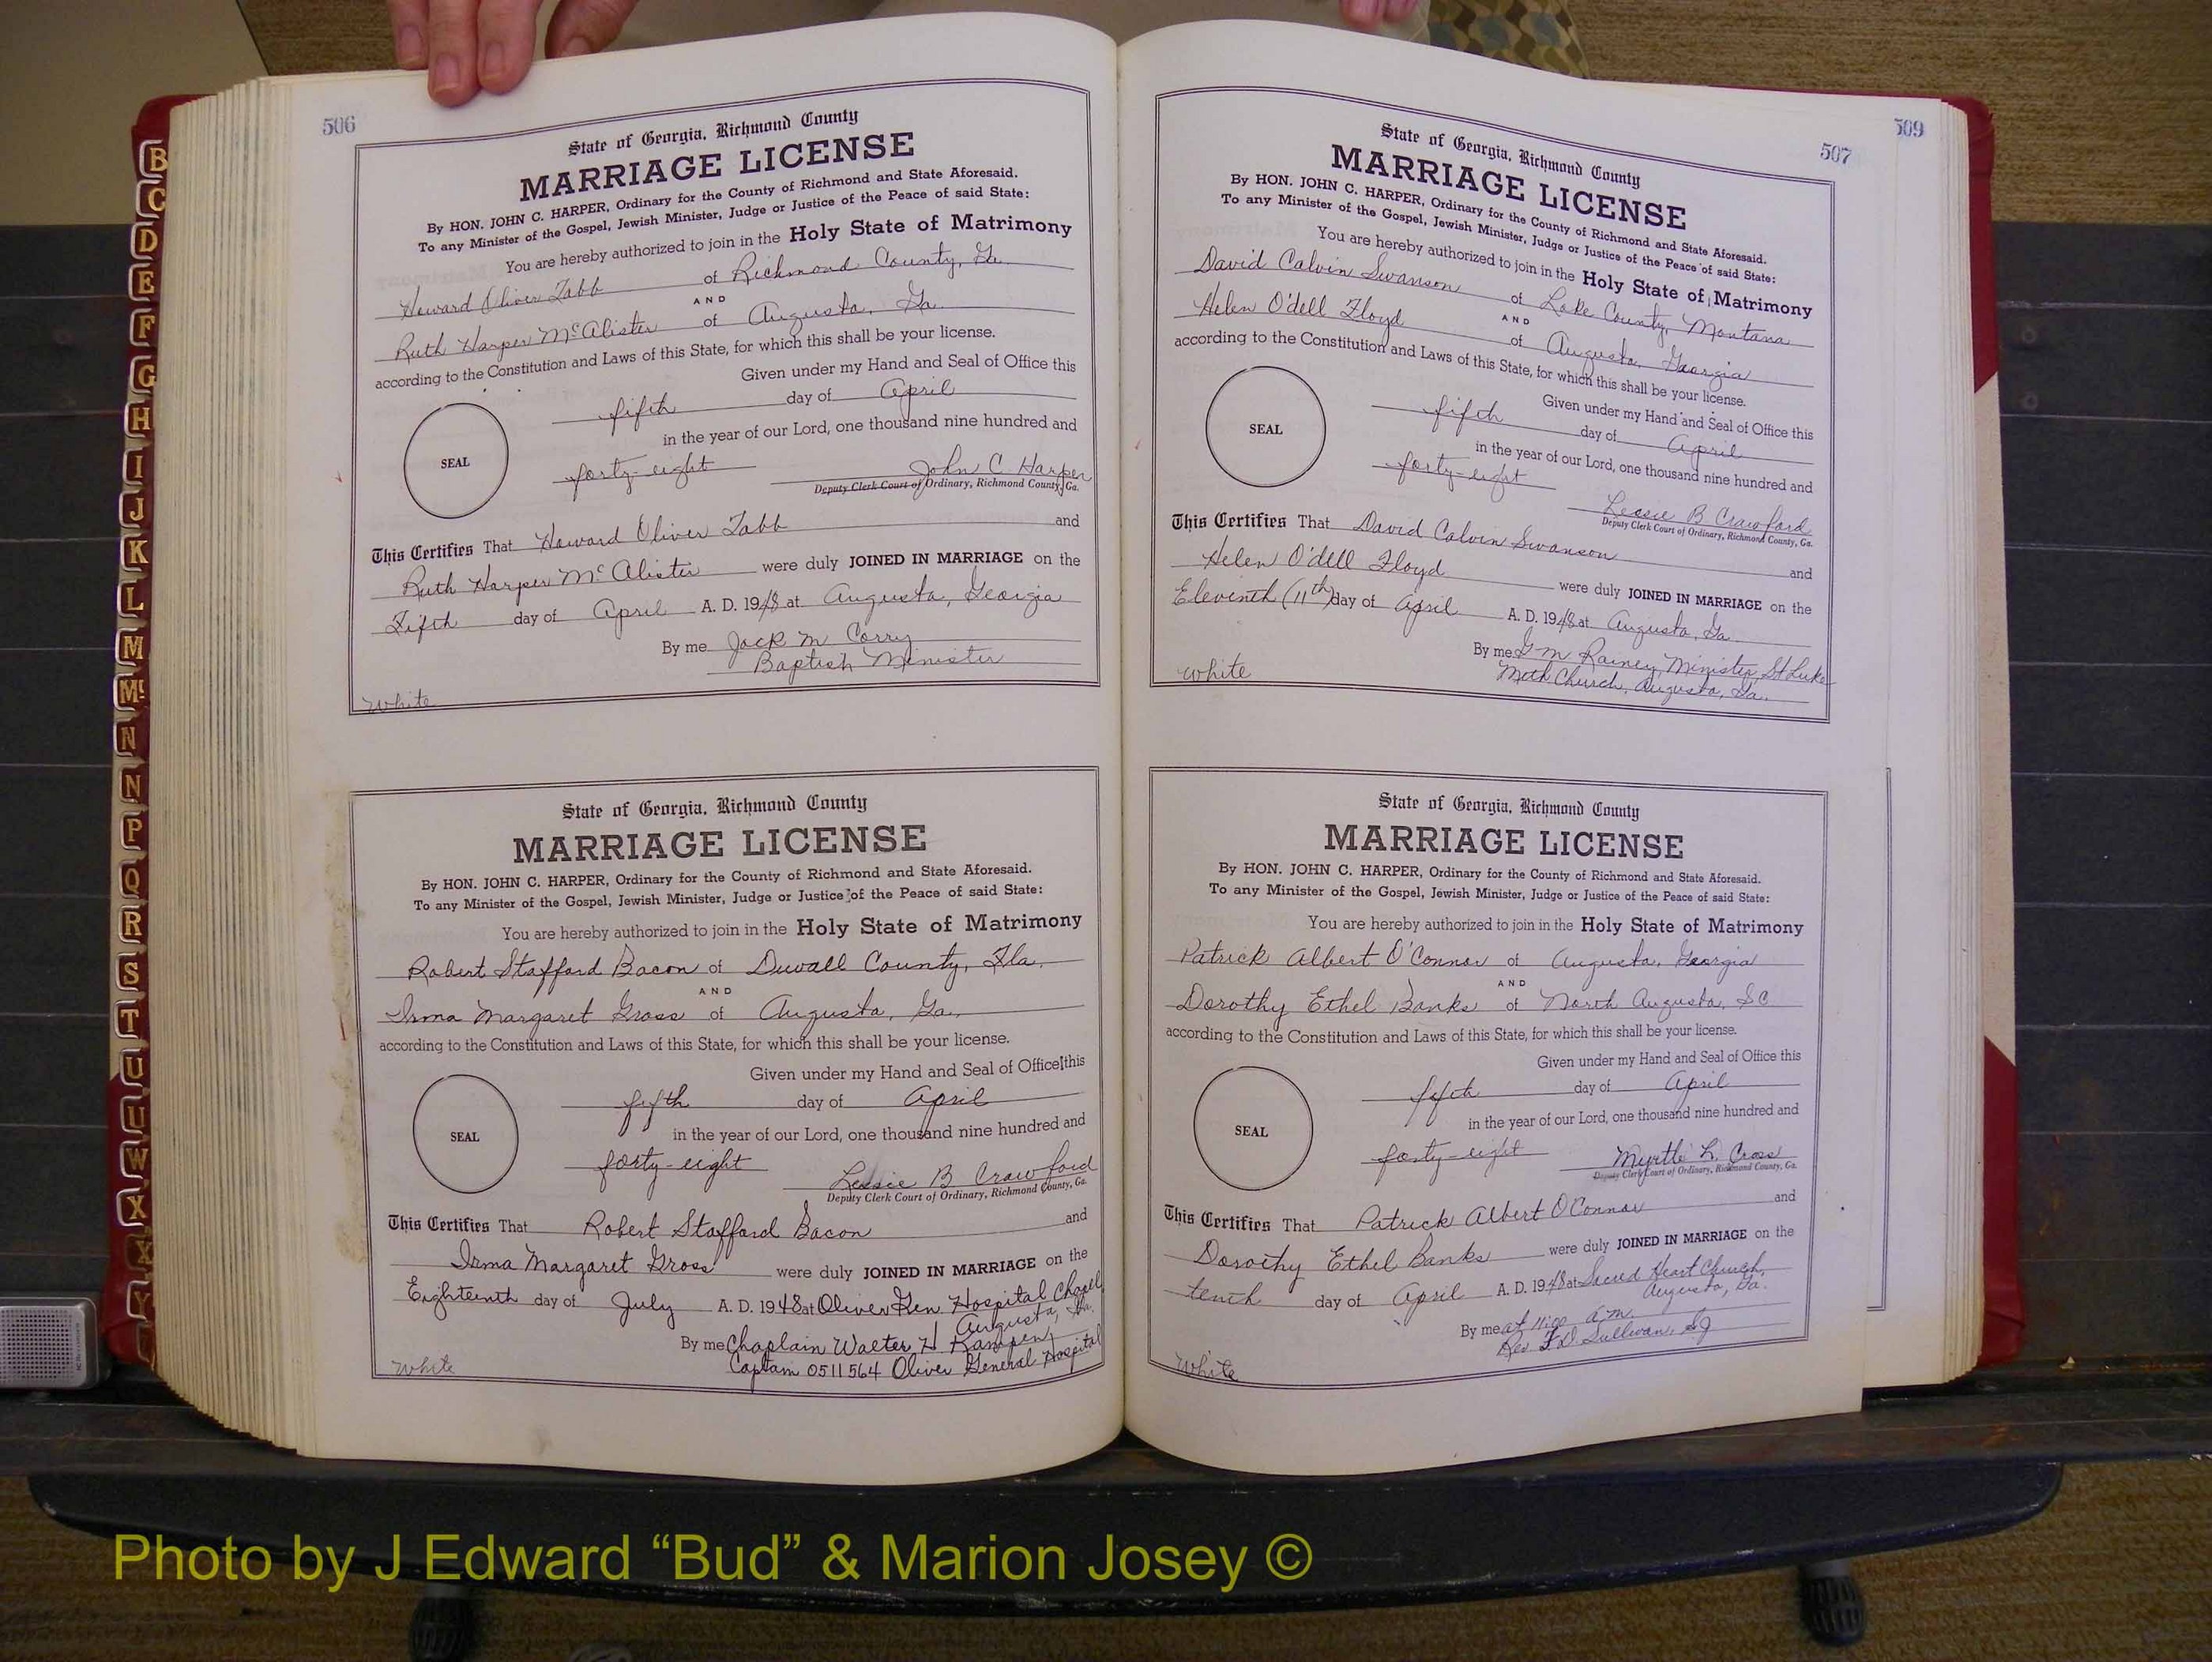 506
State of Georgia, Richmond County
MARRIAGE LICENSE
By HON. JOHN C. HARPER, Ordinary for the County of Richmond and State Aforesaid.
To any Minister of the Gospel, Jewish Minister, Judge or Justice of the Peace of said State:
You are hereby authorized to join in the Holy State of Matrimony
Howard Oliver Tabb of Richmond County, Ga.
AND
Ruth Harper McAlister of Augusta, Ga.
according to the Constitution and Laws of this State, for which this shall be your license.
Given under my Hand and Seal of Office this
fifth day of April
in the year of our Lord, one thousand nine hundred and
SEAL
forty-eight John C. Harper
Deputy Clerk Court of Ordinary, Richmond County, Ga.
This Certifies That Howard Oliver Tabb and
Ruth Harper McAlister were duly JOINED IN MARRIAGE on the
Fifth day of April A. D. 1948 at Augusta, Georgia
By me Jack M Corry
Baptist Minister
White
State of Georgia, Richmond County
MARRIAGE LICENSE
By HON. JOHN C. HARPER, Ordinary for the County of Richmond and State Aforesaid.
To any Minister of the Gospel, Jewish Minister, Judge or Justice of the Peace of said State:
You are hereby authorized to join in the Holy State of Matrimony
Robert Stafford Bacon of Duvall County, Fla.
AND
Irma Margaret Gross of Augusta, Ga.
according to the Constitution and Laws of this State, for which this shall be your license.
Given under my Hand and Seal of Office this
fifth day of April
in the year of our Lord, one thousand nine hundred and
SEAL
forty-eight Lessie B Crawford
Deputy Clerk Court of Ordinary, Richmond County, Ga.
This Certifies That Robert Stafford Bacon and
Irma Margaret Gross were duly JOINED IN MARRIAGE on the
Eighteenth day of July A. D. 1948 at Oliver Gen Hospital Chapel
Augusta, Ga.
By me Chaplain Walter H Kampen
Captain 0511564 Oliver General Hospital
White
509
507
State of Georgia, Richmond County
MARRIAGE LICENSE
By HON. JOHN C. HARPER, Ordinary for the County of Richmond and State Aforesaid.
To any Minister of the Gospel, Jewish Minister, Judge or Justice of the Peace of said State:
You are hereby authorized to join in the Holy State of Matrimony
David Calvin Swanson of Lake County, Montana
AND
Helen O'dell Floyd of Augusta, Georgia
according to the Constitution and Laws of this State, for which this shall be your license.
Given under my Hand and Seal of Office this
fifth day of April
in the year of our Lord, one thousand nine hundred and
SEAL
forty-eight Lessie B Crawford
Deputy Clerk Court of Ordinary, Richmond County, Ga.
This Certifies That David Calvin Swanson and
Helen O'dell Floyd were duly JOINED IN MARRIAGE on the
Eleventh (11th) day of April A. D. 1948 at Augusta, Ga.
By me G M Rainey, Minister, St Luke
Meth Church, Augusta, Ga.
White
State of Georgia, Richmond County
MARRIAGE LICENSE
By HON. JOHN C. HARPER, Ordinary for the County of Richmond and State Aforesaid.
To any Minister of the Gospel, Jewish Minister, Judge or Justice of the Peace of said State:
You are hereby authorized to join in the Holy State of Matrimony
Patrick Albert O'Connor of Augusta, Georgia
AND
Dorothy Ethel Banks of North Augusta, SC
according to the Constitution and Laws of this State, for which this shall be your license.
Given under my Hand and Seal of Office this
fifth day of April
in the year of our Lord, one thousand nine hundred and
SEAL
forty-eight Myrtle L. Cross
Deputy Clerk Court of Ordinary, Richmond County, Ga.
This Certifies That Patrick Albert O'Connor and
Dorothy Ethel Banks were duly JOINED IN MARRIAGE on the
tenth day of April A. D. 1948 at Sacred Heart Church,
Augusta, Ga.
By me at 11:00 a.m.
Rev F D Sullivan, SJ
White
B
C
D
E
F
G
H
I
J
K
L
M
Mc
N
N
P
Q
R
S
T
U
U
W
X
X
Y
Photo by J Edward “Bud” & Marion Josey ©